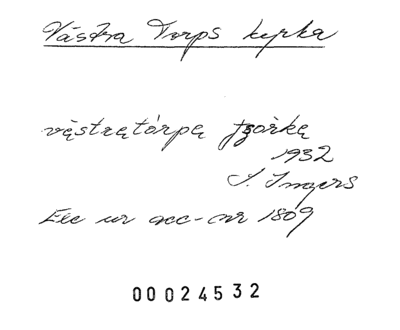 Västra Torps kyrka
västrętórpę
1932
I. Ingers
Exc ur acc-nr 1809
00024532